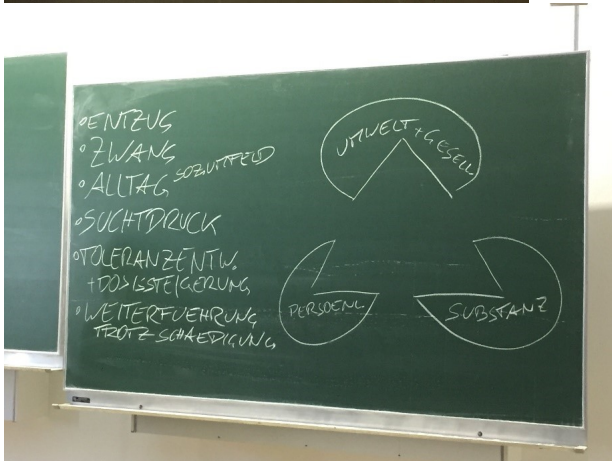 •ENTZUG
•ZWANG
•ALLTAG SOZ.UMFELD
•SUCHTDRUCK
•TOLERANZENTW.
+DOSISSTEIGERUNG
•WEITERFUEHRUNG
TROTZ SCHAEDIGUNG
UMWELT+GESELL
PERSOENL
SUBSTANZ